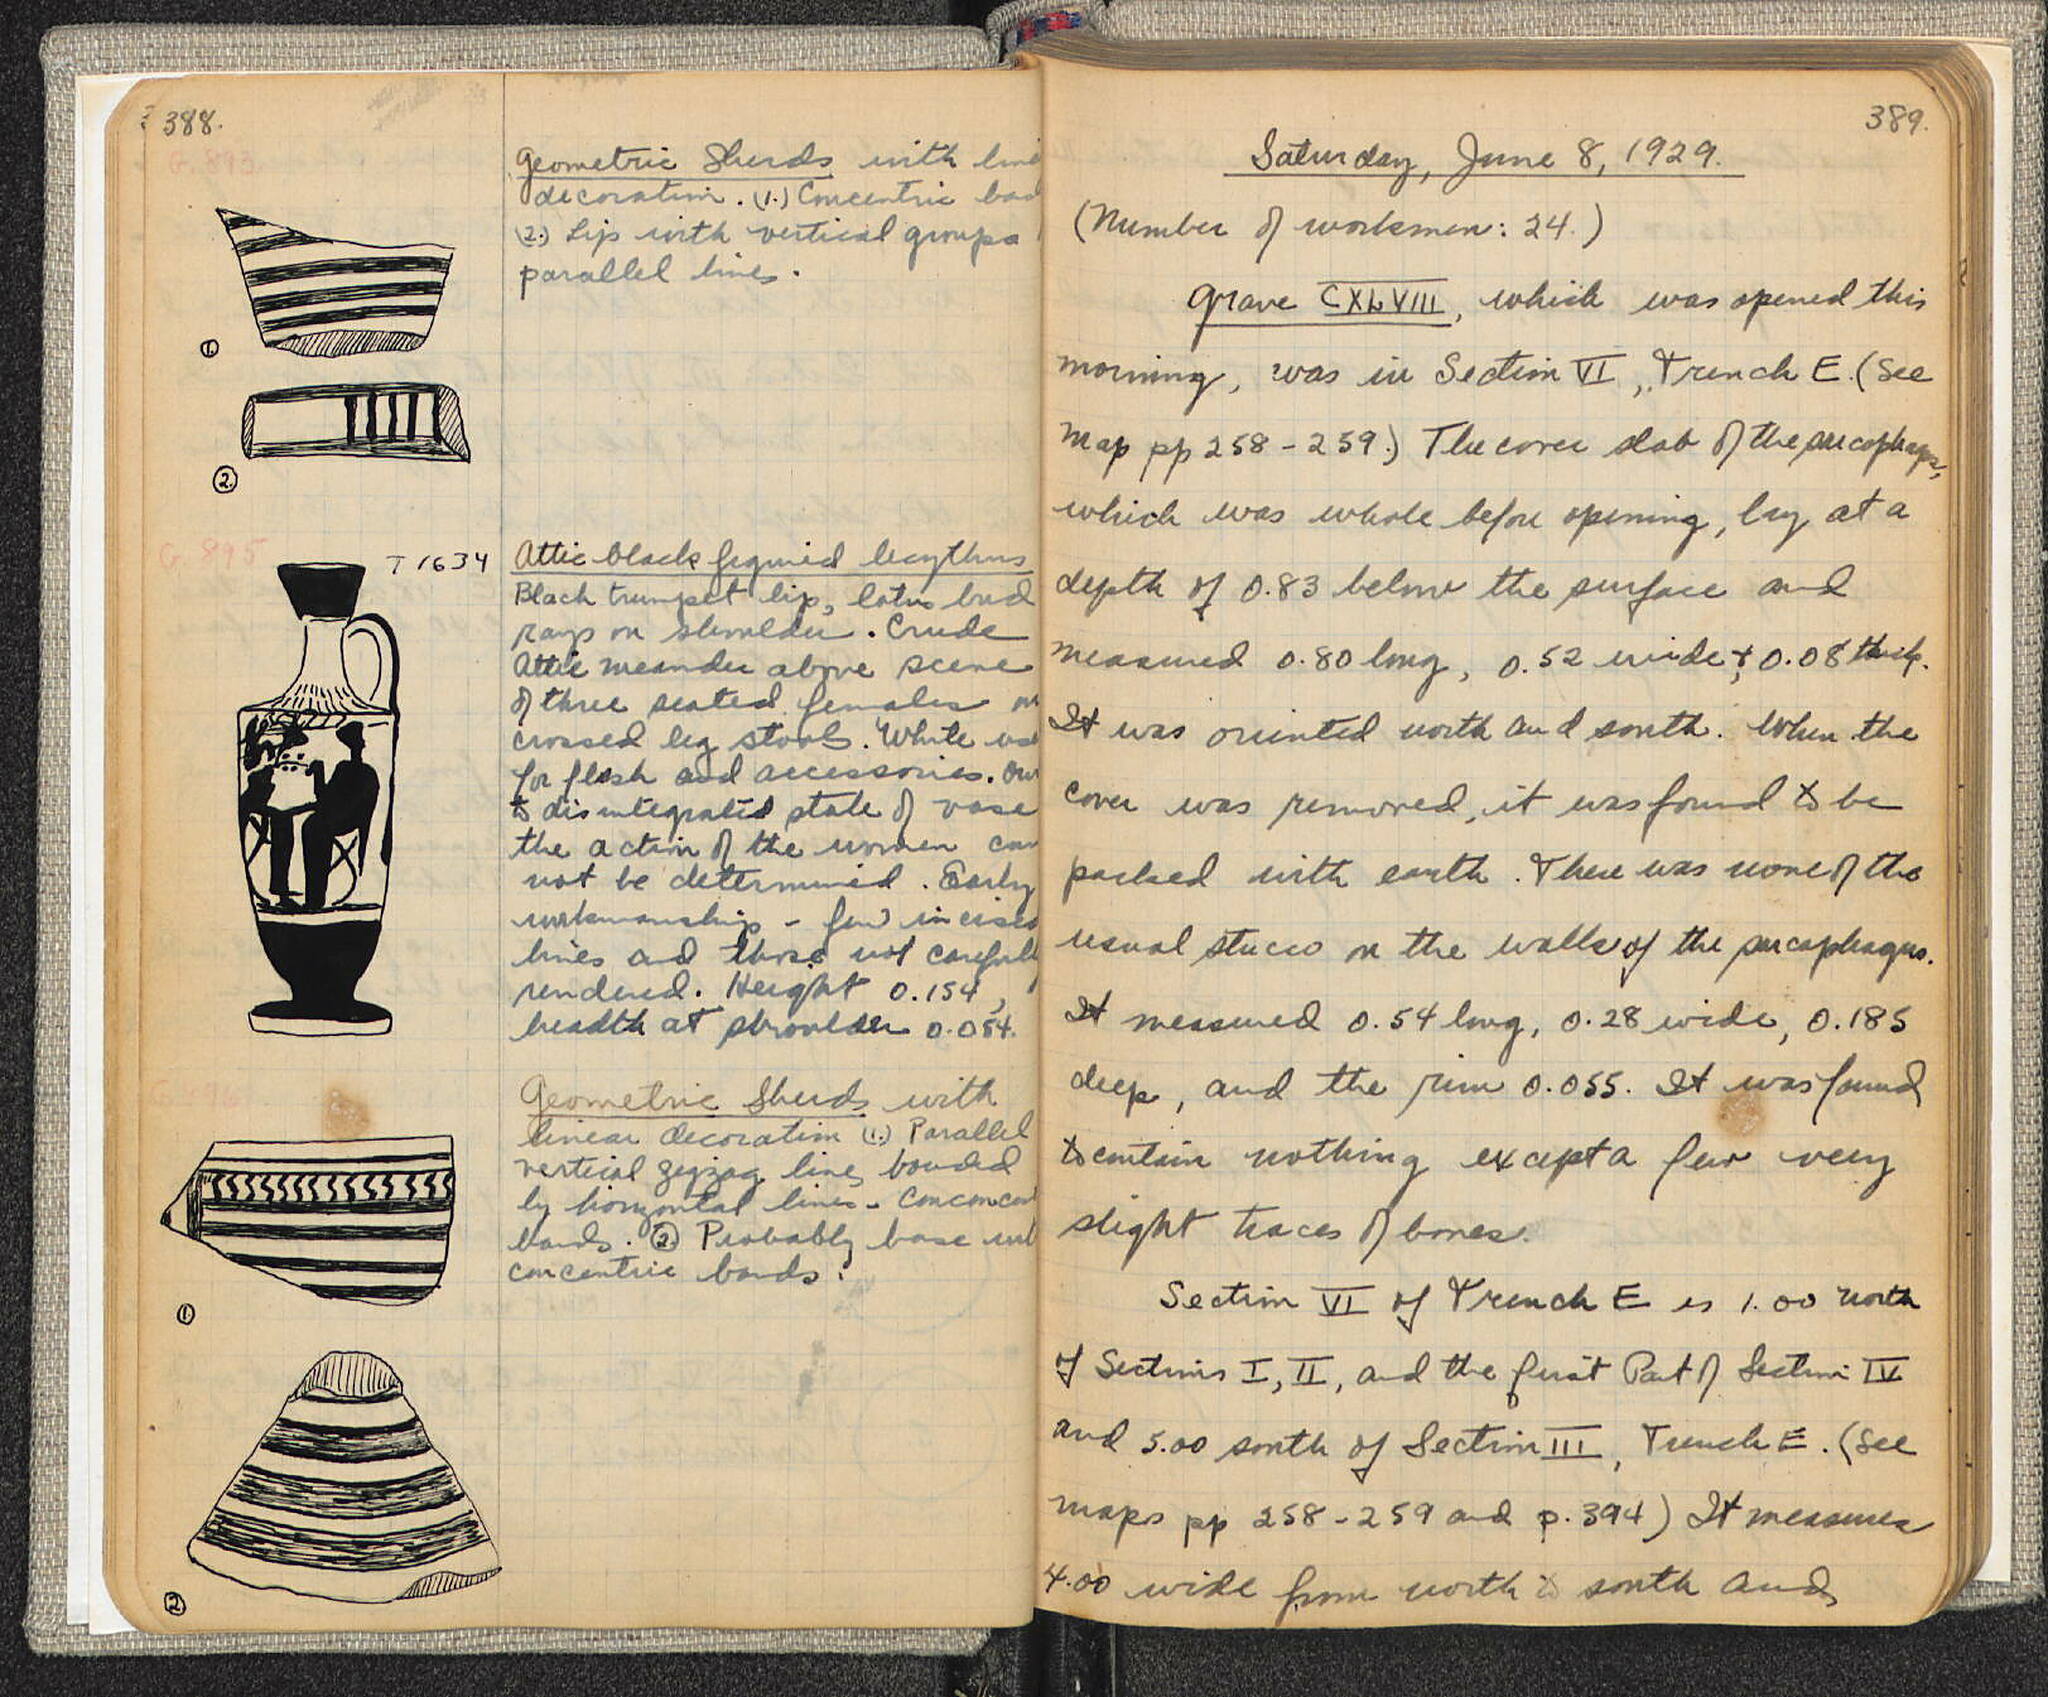 388.
G. 893
Geometric Sherds with
decoration. (1.) Concentric
(2.) Lip with vertical groups
parallel lines.
1.
2.
G. 895
T 1634
Attic black figured lecythus
Black trumpet lip, lotus bud
rays on shoulder. Crude
Attic meander above scene
of three seated females
crossed leg stools. White
for flesh and accessories.
to disintegrated state of vase
the action of the women can
not be determined. Early
workmanship - few incised
lines and those not
rendered. Height 0.154,
breadth at shoulder 0.054.
Geometric Sherds with
linear decoration (1.) Parallel
vertical zigzag lines bounded
by horizontal lines -
bands. (2.) Probably base
concentric bands.
1.
2.
389.
Saturday, June 8, 1929.
(Number of workmen: 24.)
Grave CXLVIII, which was opened this
morning, was in Section VI, Trench E. (See
Map pp 258-259.) The cover slab of the sarcophagus,
which was whole before opening, lay at a
depth of 0.83 below the surface and
measured 0.80 long, 0.52 wide + 0.08 thick.
It was oriented north and south. When the
cover was removed, it was found to be
packed with earth. There was none of the
usual stucco on the walls of the sarcophagus.
It measured 0.54 long, 0.28 wide, 0.185
deep, and the rim 0.055. It was found
to contain nothing except a few very
slight traces of bones.
Section VI of Trench E is 1.00 north
of Sections I, II, and the first Part of Section IV
and 5.00 south of Section III, Trench E. (See
maps pp 258-259 and p. 394) It measures
4.00 wide from north to south and